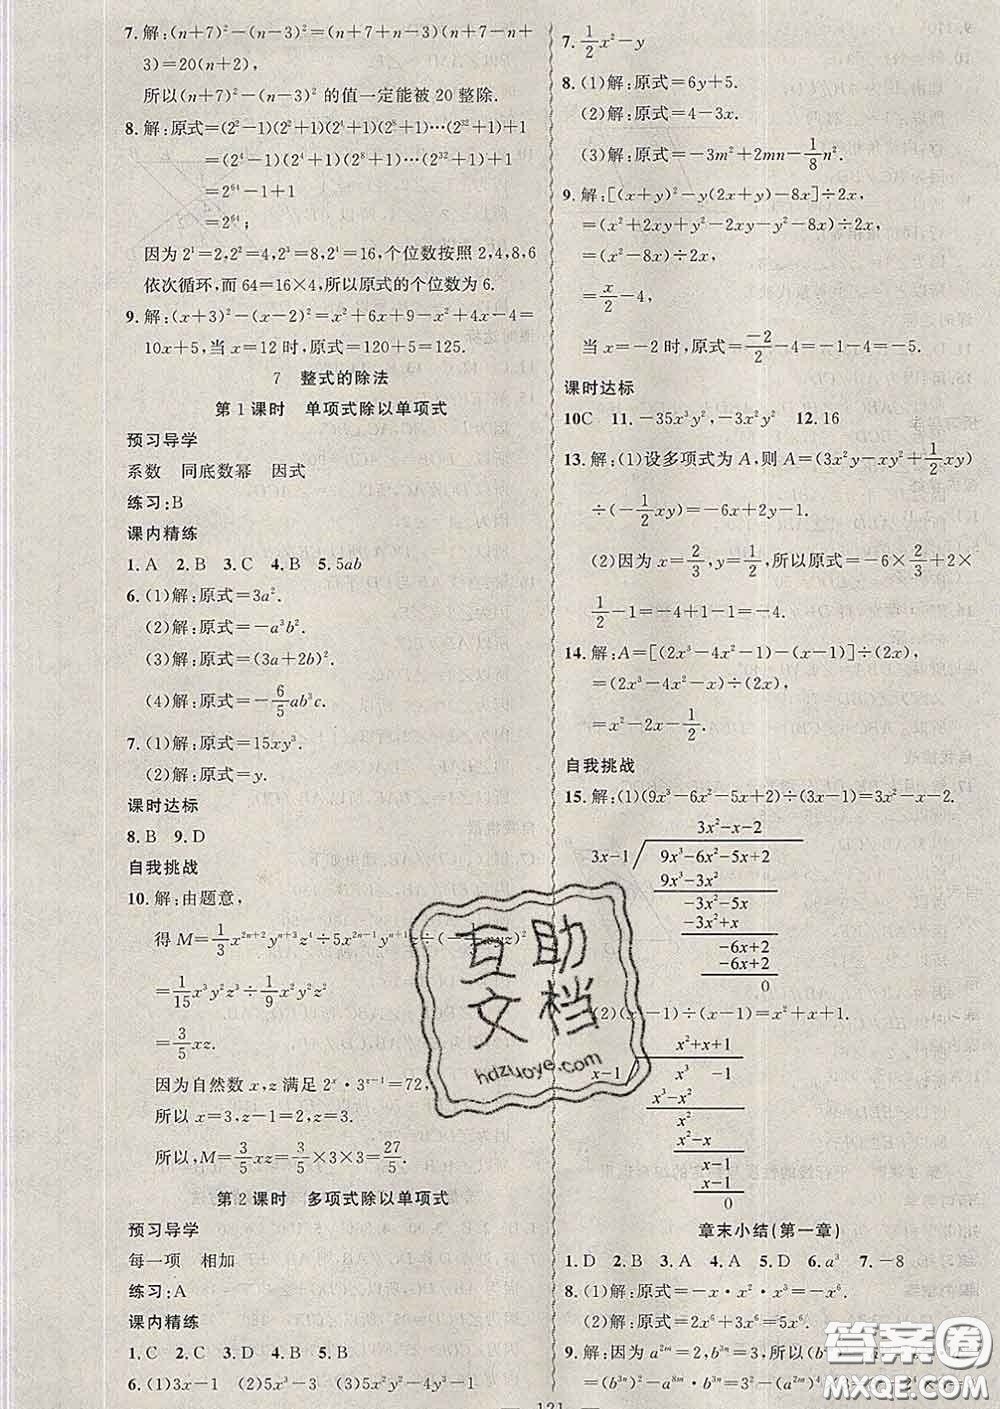 7.解:(n+7)²-(n-3)²=(n+7+n-3)(n+7-n+
3)=20(n+2),
所以(n+7)²-(n-3)²的值一定能被20整除.
8.解:原式=(2²-1)(2²+1)(2⁴+1)…(2³²+1)+1
=(2⁴-1)(2⁴+1)(2⁸+1)…(2³²+1)+1
=2⁶⁴-1+1
=2⁶⁴;
因为2¹=2,2²=4,2³=8,2⁴=16,个位数按照2,4,8,6
依次循环,而64=16×4,所以原式的个位数为6.
9.解:(x+3)²-(x-2)²=x²+6x+9-x²+4x-4=
10x+5,当x=12时,原式=120+5=125.
7 整式的除法
第1课时 单项式除以单项式
预习导学
系数 同底数幂 因式
练习:B
课内精练
1.A 2.B 3.C 4.B 5.5ab
6.(1)解:原式=3a².
(2)解:原式=-a³b².
(3)解:原式=(3a+2b)².
(4)解:原式=-6/5ab³c.
7.(1)解:原式=15xy³.
(2)解:原式=y.
课时达标
8.B 9.D
自我挑战
10.解:由题意,
得M=1/3x²ⁿ⁺²yⁿ⁺³z⁴÷5x²ⁿ⁻¹yⁿ⁺¹z÷(-1/3xyz)²
=1/15x³y²z³÷1/9x²y²z²
=3/5xz.
因为自然数x,z满足2ˣ·3ᶻ⁻¹=72,
所以x=3,z-1=2,z=3.
所以,M=3/5xz=3/5×3×3=27/5.
第2课时 多项式除以单项式
预习导学
每一项 相加
练习:A
课内精练
1.C 2.C 3.D 4.B 5.B
6.(1)3x-1 (2)5x-2y (3)5x³y²-4y³-1
7.1/2x²-y
8.(1)解:原式=6y+5.
(2)解:原式=4-3x.
(3)解:原式=-3m²+2mn-1/8n².
9.解:[(x+y)²-y(2x+y)-8x]÷2x,
=(x²+2xy+y²-2xy-y²-8x)÷2x,
=(x²-8x)÷2x,
=x/2-4,
当x=-2时,原式=-2/2-4=-1-4=-5.
课时达标
10C 11.-35x³y²,-3x²y² 12.16
13.解:(1)设多项式为A,则A=(3x²y-xy²+1/2xy)
÷(-1/2xy)=-6x+2y-1.
(2)因为x=2/3,y=1/2,所以原式=-6×2/3+2×
1/2-1=-4+1-1=-4.
14.解:A=[(2x³-4x²-1)-(x-1)]÷(2x),
=(2x³-4x²-x)÷(2x),
=x²-2x-1/2.
自我挑战
15.解:(1)(9x³-6x²-5x+2)÷(3x-1)=3x²-x-2.
3x²-x-2
3x-1 9x³-6x²-5x+2
9x³-3x²
-3x²-5x
-3x²+x
-6x+2
-6x+2
0
(2)(x³-1)÷(x-1)=x²+x+1.
x²+x+1
x-1 x³ -1
x³-x²
x²
x²-x
x-1
x-1
0
章末小结(第一章)
1.D 2.B 3.A 4.A 5.D 6.a³ 7.-8
8.(1)解:原式=-x·x²·x³=-x⁶.
(2)解:原式=2x⁶+3x⁶=5x⁶.
9.解:因为a²ᵐ=2,b³ⁿ=3,所以(b
(b³ⁿ)²-a⁸ᵐ·b³ⁿ=3²-(a²ᵐ)⁴
121
互助
文档
hdzuoye.com
答案圈
MXQE.COM